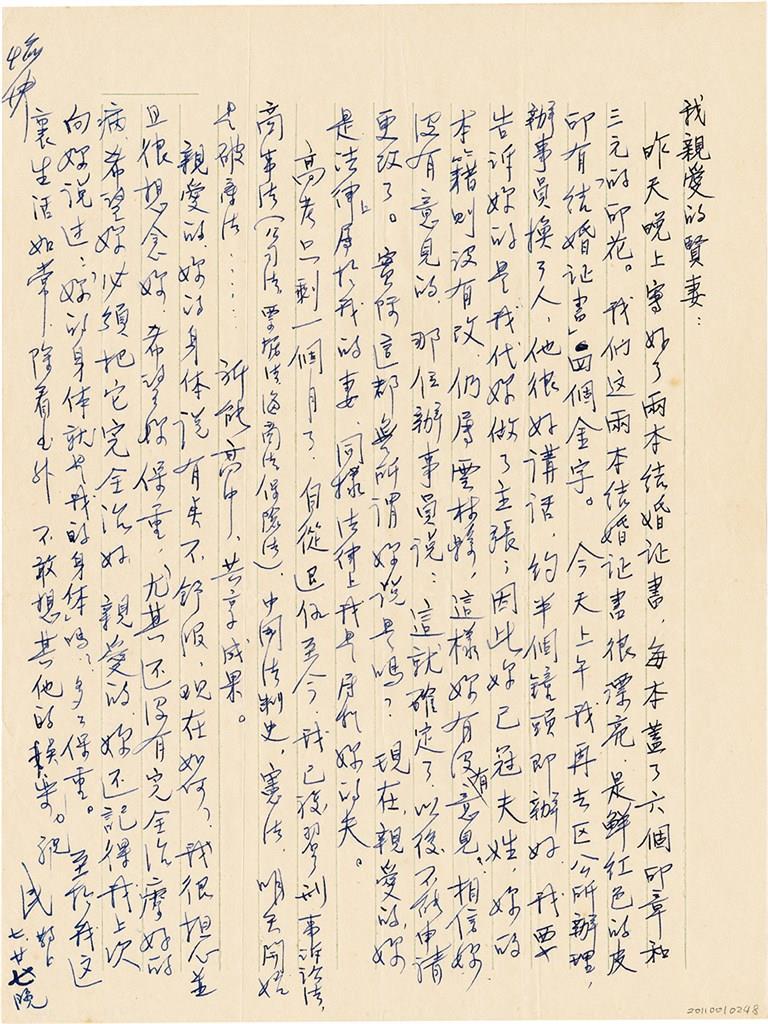 我親愛的賢妻：
昨天晚上寫好了兩本結婚证書，每本蓋了六個印章和
三元的印花。我們这兩本結婚证書很漂亮，是鮮紅色的皮
印有「結婚证書」四個金字。今天上午我再去区公所辦理，
辦事員換了人，他很好講話，約半個鐘頭即辦好，我要
告訴妳的是我代妳做了主張；因此妳已冠夫姓，妳的
本籍則没有改，仍屬雲林縣，這樣妳有没有意見？相信妳
没有意見的，那位辦事員説：這就確定了，以後不能申請
更改了。實際這都無所谓，妳説是嗎？現在，親愛的，妳
是法律上屬於我的妻，同樣法律上我是屬於妳的夫。
高考只剩一個月了，自從退伍至今，我已複習刑事訴訟法，
商事法（公司法票據法海商法保險法），中國法制史，憲法，明天開始
是破產法……祈能高中，共享成果。
親愛的，妳的身体说有点不舒服，現在如何，我很担心並
且很想念妳，希望妳保重，尤其还没有完全治療好的
病，希望妳必須把它完全治好，親愛的，妳还記得我上次
向妳说过：「妳的身体就是我的身体」嗎？多多保重。至於我這
裏生活如常，除看书外，不敢想其他的事。祝
民
七、廿七晚
20110010248